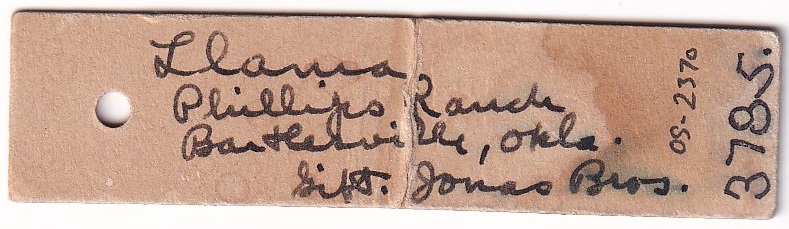 Llama
Phillips Ranch
Bartlesville, Okla.
Gift. Jonas Bros.
09-2370
3785.